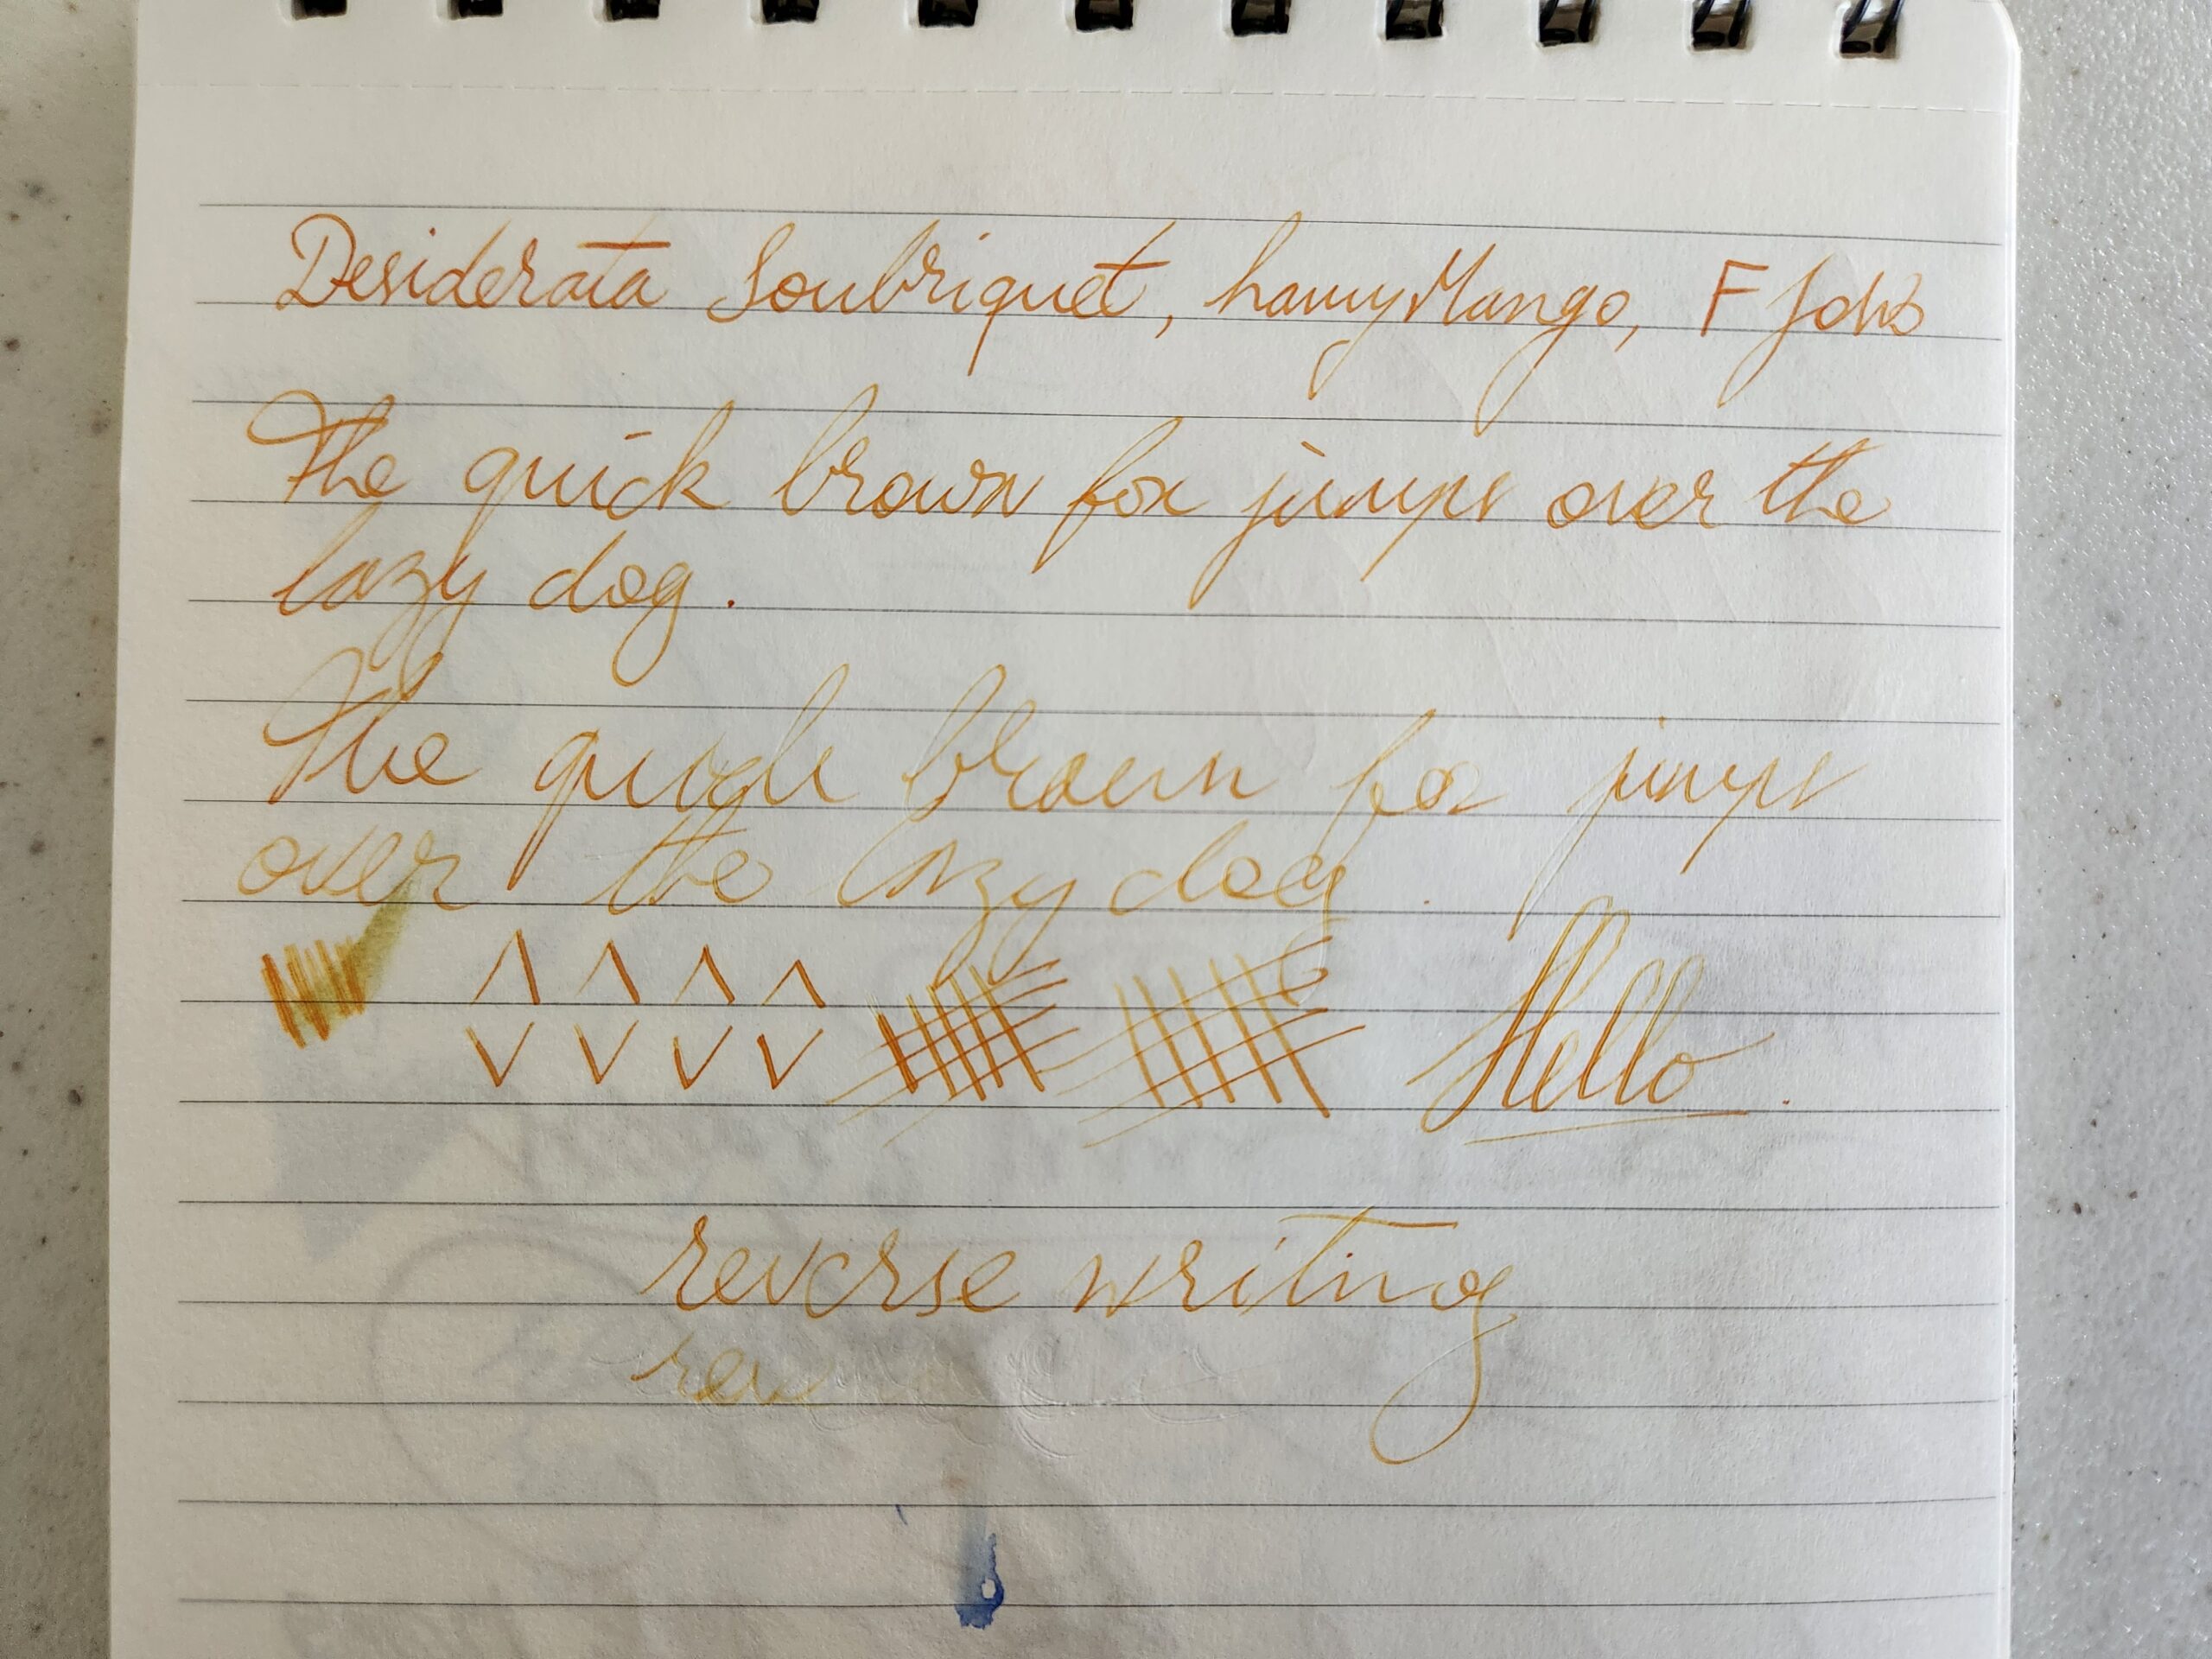 Desiderata Soubriquet, hamy Mango, F
The quick brown fox jumps over the
lazy dog.
The quick brown fox jumps
over the lazy dog.
Hello.
reverse writing